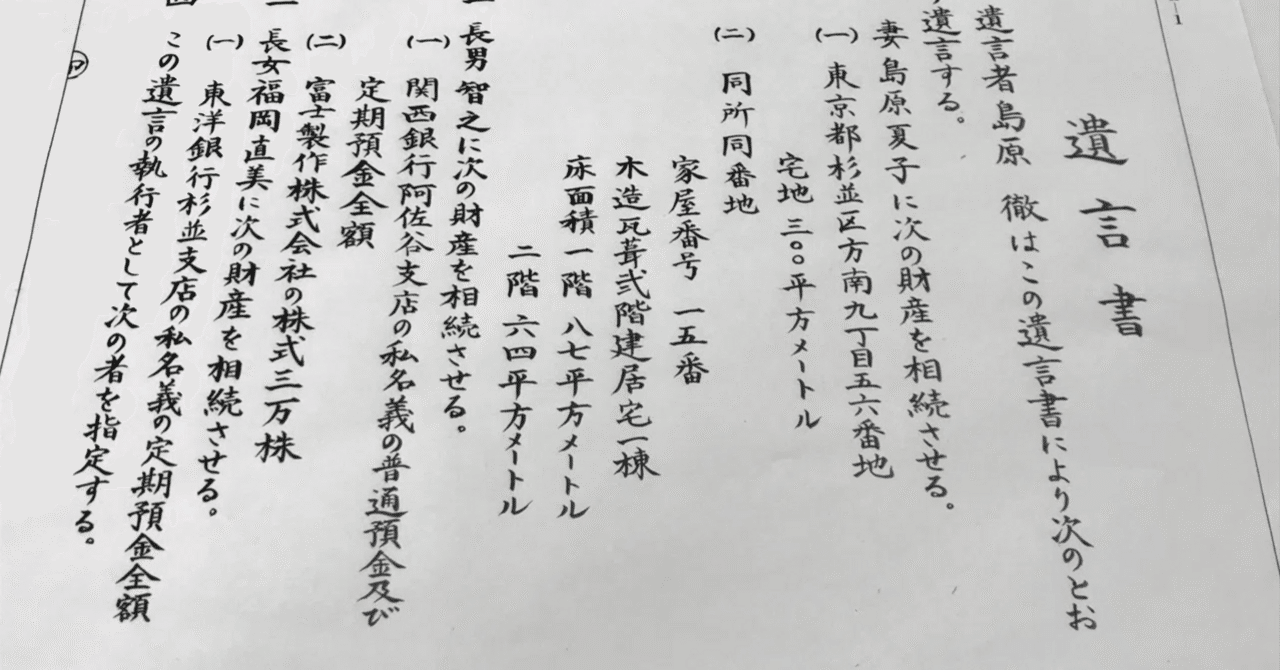 遺言書
遺言者 島原 徹はこの遺言書により次のとお
遺言する。
妻島原夏子に次の財産を相続させる。
(一) 東京都杉並区方南九丁目五六番地
宅地 三〇〇平方メートル
(二) 同所同番地
家屋番号 一五番
木造瓦葺弐階建居宅一棟
床面積一階 八七平方メートル
二階 六四平方メートル
長男 智之に次の財産を相続させる。
(一) 関西銀行阿佐谷支店の私名義の普通預金及び
定期預金全額
(二) 富士製作株式会社の株式三万株
長女福岡直美に次の財産を相続させる。
(一) 東洋銀行杉並支店の私名義の定期預金全額
この遺言の執行者として次の者を指定する。
1